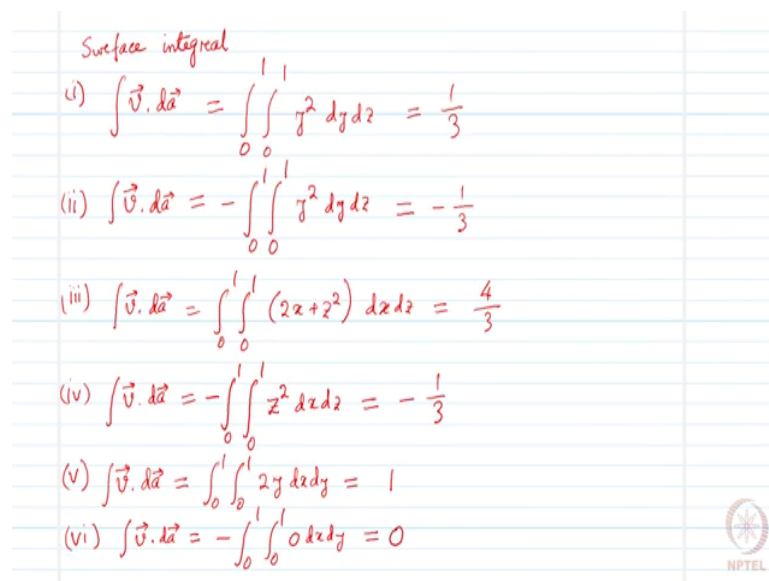 Surface integral
(i) ∫ v⃗. da⃗ = ∫₀¹ ∫₀¹ y² dy dz = 1/3
(ii) ∫ v⃗. da⃗ = - ∫₀¹ ∫₀¹ y² dy dz = - 1/3
(iii) ∫ v⃗. da⃗ = ∫₀¹ ∫₀¹ (2x + z²) dx dz = 4/3
(iv) ∫ v⃗. da⃗ = - ∫₀¹ ∫₀¹ z² dx dz = - 1/3
(v) ∫ v⃗. da⃗ = ∫₀¹ ∫₀¹ 2y dx dy = 1
(vi) ∫ v⃗. da⃗ = - ∫₀¹ ∫₀¹ 0 dx dy = 0
NPTEL